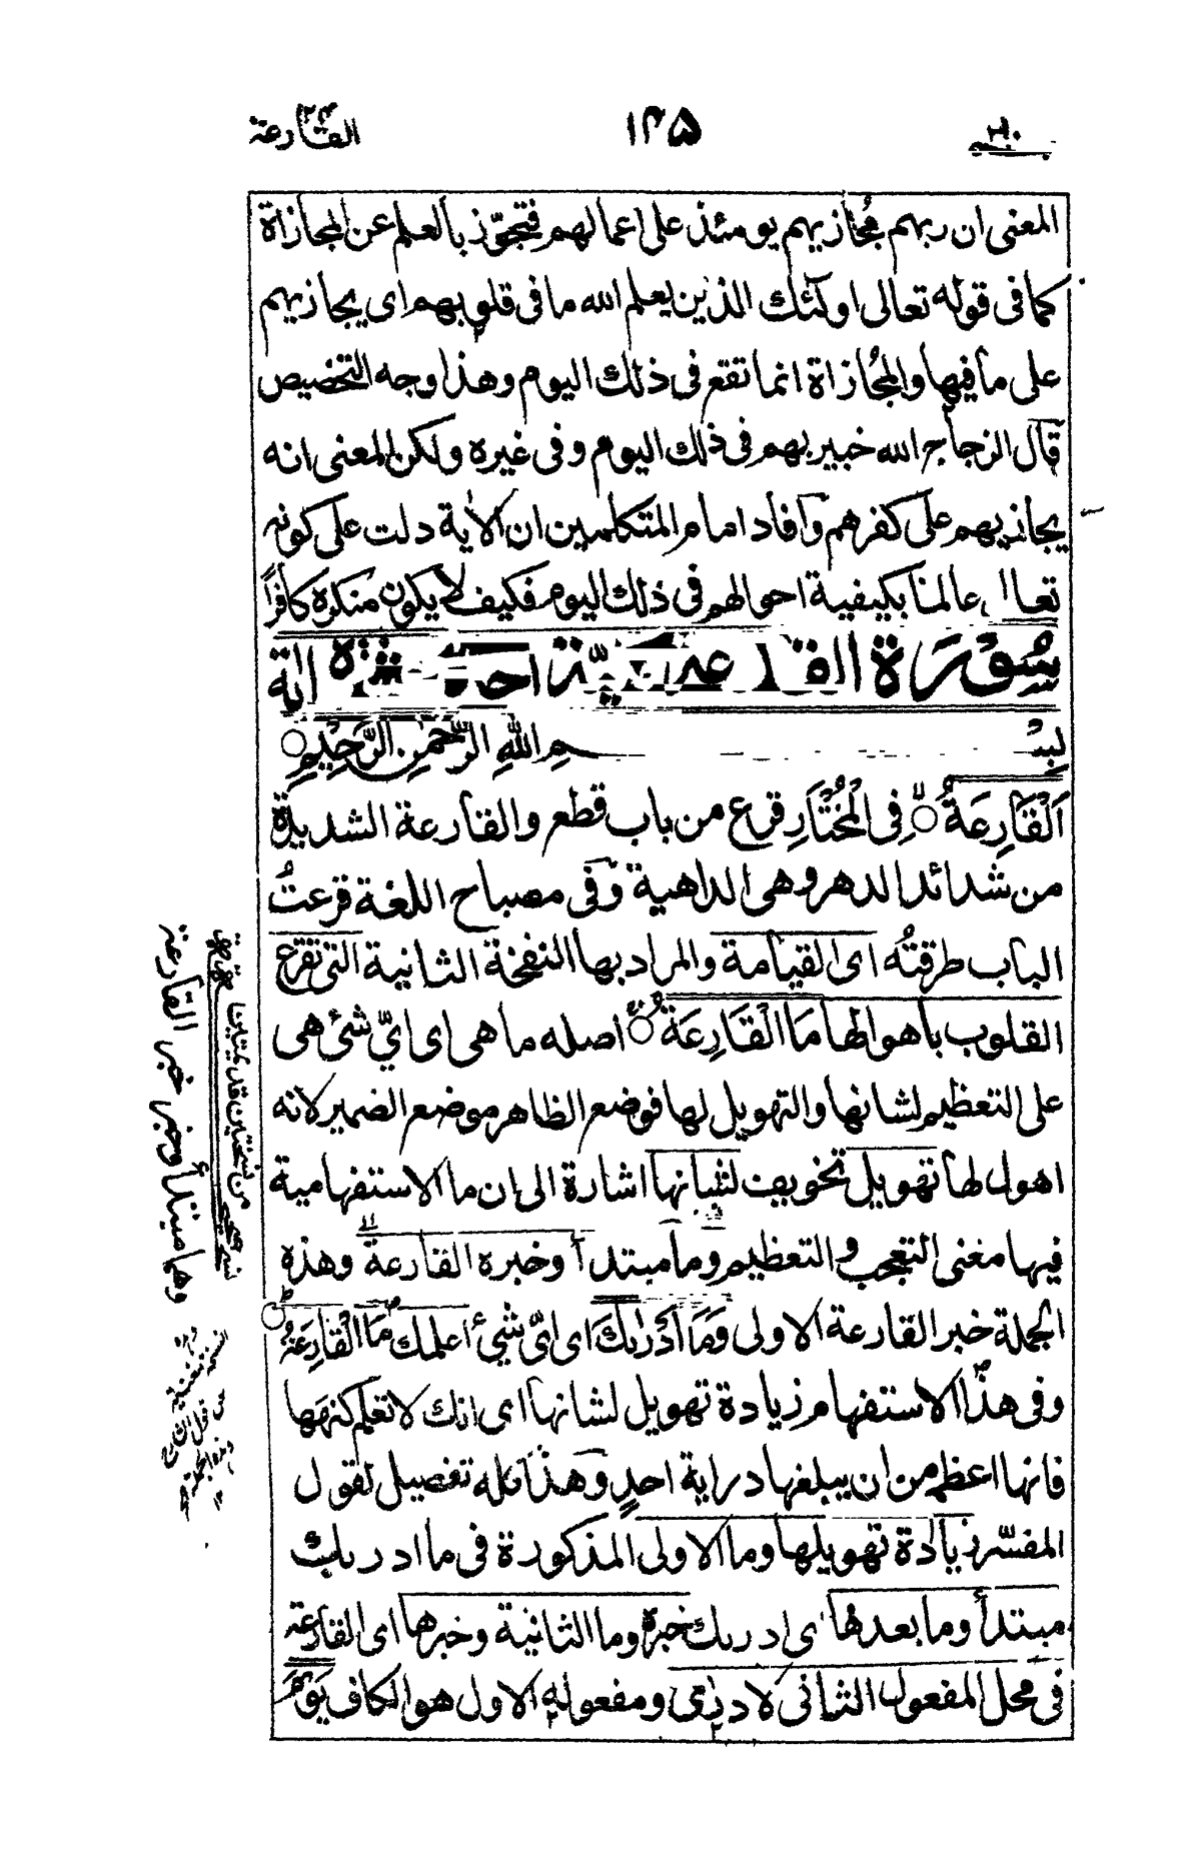 القارعة
١٣٥
المعنى ان ربهم مُجازيهم يومئذ على اعمالهم فتجوّز بالعلم عن المجازاة
كما فى قوله تعالى اولئك الذين يعلم الله ما فى قلوبهم اى يجازيهم
على ما فيها والمُجازاة انما تقع فى ذلك اليوم وهذا وجه التخصيص
قال الزجاج الله خبير بهم فى ذلك اليوم وفى غيره ولكن المعنى انه
يجازيهم على كفرهم وافاد امام المتكلمين ان الاية دلت على كونه
تعالى عالما بكيفية احوالهم فى ذلك اليوم فكيف لا يكون منكره كافرًا
سُوْرَة القارعة احدى عشرة اية
بِسْمِ اللهِ الرَّحْمٰنِ الرَّحِيْمِ
اَلْقَارِعَةُ فِى الْمُخْتَارِ قرع من باب قطع والقارعة الشديدة
من شدائد الدهر وهى الداهية وفى مصباح اللغة قرعتُ
الباب طرقتُه اى القيامة والمراد بها النفخة الثانية التى تقرع
القلوب باهوالها مَا الْقَارِعَةُ اصله ما هى اى ايّ شئ هى
على التعظيم لشانها والتهويل لها فوضع الظاهر موضع الضمير لانه
اهول لها تهويل تخويف لشانها اشارة الى ان ما الاستفهامية
فيها معنى التعجب والتعظيم وما مبتدأ وخبره القارعة وهذه
الجملة خبر القارعة الاولى وَمَا اَدْرٰىكَ اى ايّ شئ اعلمك مَا الْقَارِعَةُ
وفى هذا الاستفهام زيادة تهويل لشانها اى انك لا تعلم كنهها
فانها اعظم من ان يبلغها دراية احدٍ وهذا كله تفصيل لقول
المفسّر زيادة تهويلها وما الاولى المذكورة فى ما ادرىك
مبتدأ وما بعدها اى ادرىك خبره وما الثانية وخبرها اى القارعة
فى محل المفعول الثانى لادرى ومفعوله الاول هو الكاف يَوْمَ
وهما مبتدأ وخبر خبر القارعة